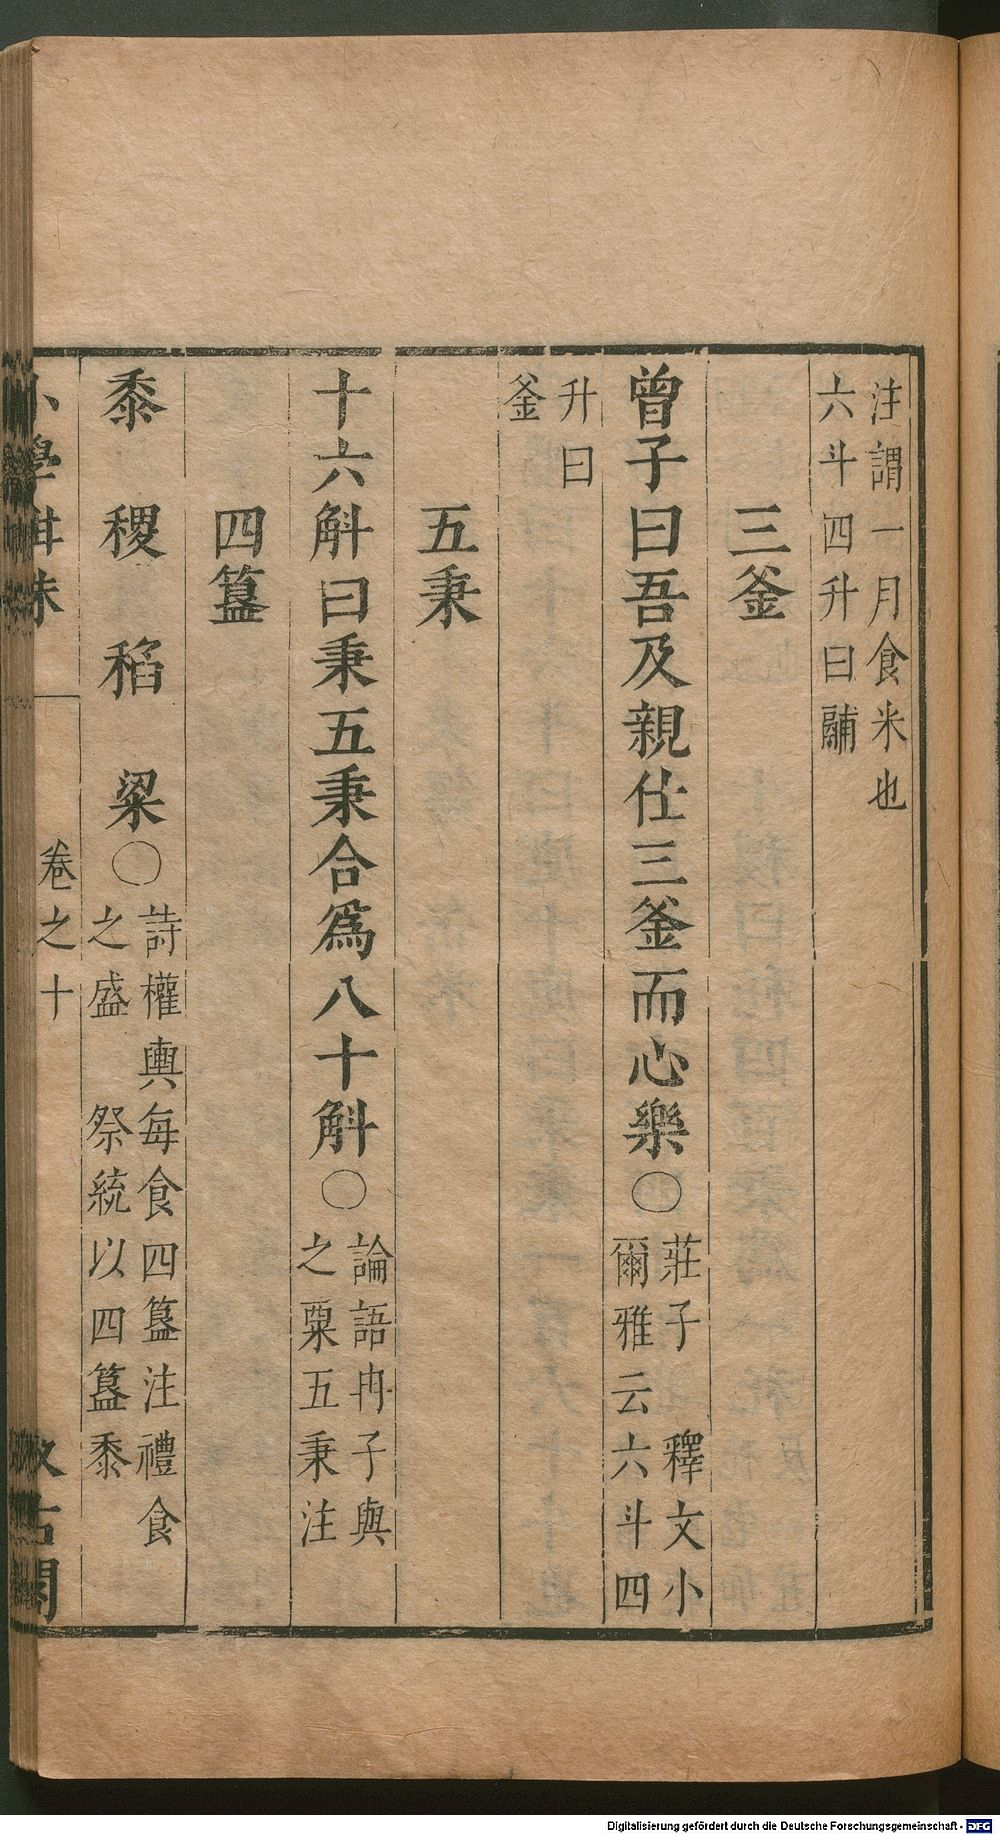 注謂一月食米也
六斗四升曰鬴
三釜
曾子曰吾及親仕三釜而心樂○莊子　釋文小
爾雅云六斗四
升曰
釜
五秉
十六斛曰秉五秉合爲八十斛○論語冉子與
之粟五秉注
四簋
黍　稷　稻　粱○詩權輿每食四簋注禮食
之盛　祭統以四簋黍
小學紺珠　卷之十　汲古閣
Digitalisierung gefördert durch die Deutsche Forschungsgemeinschaft - DFG